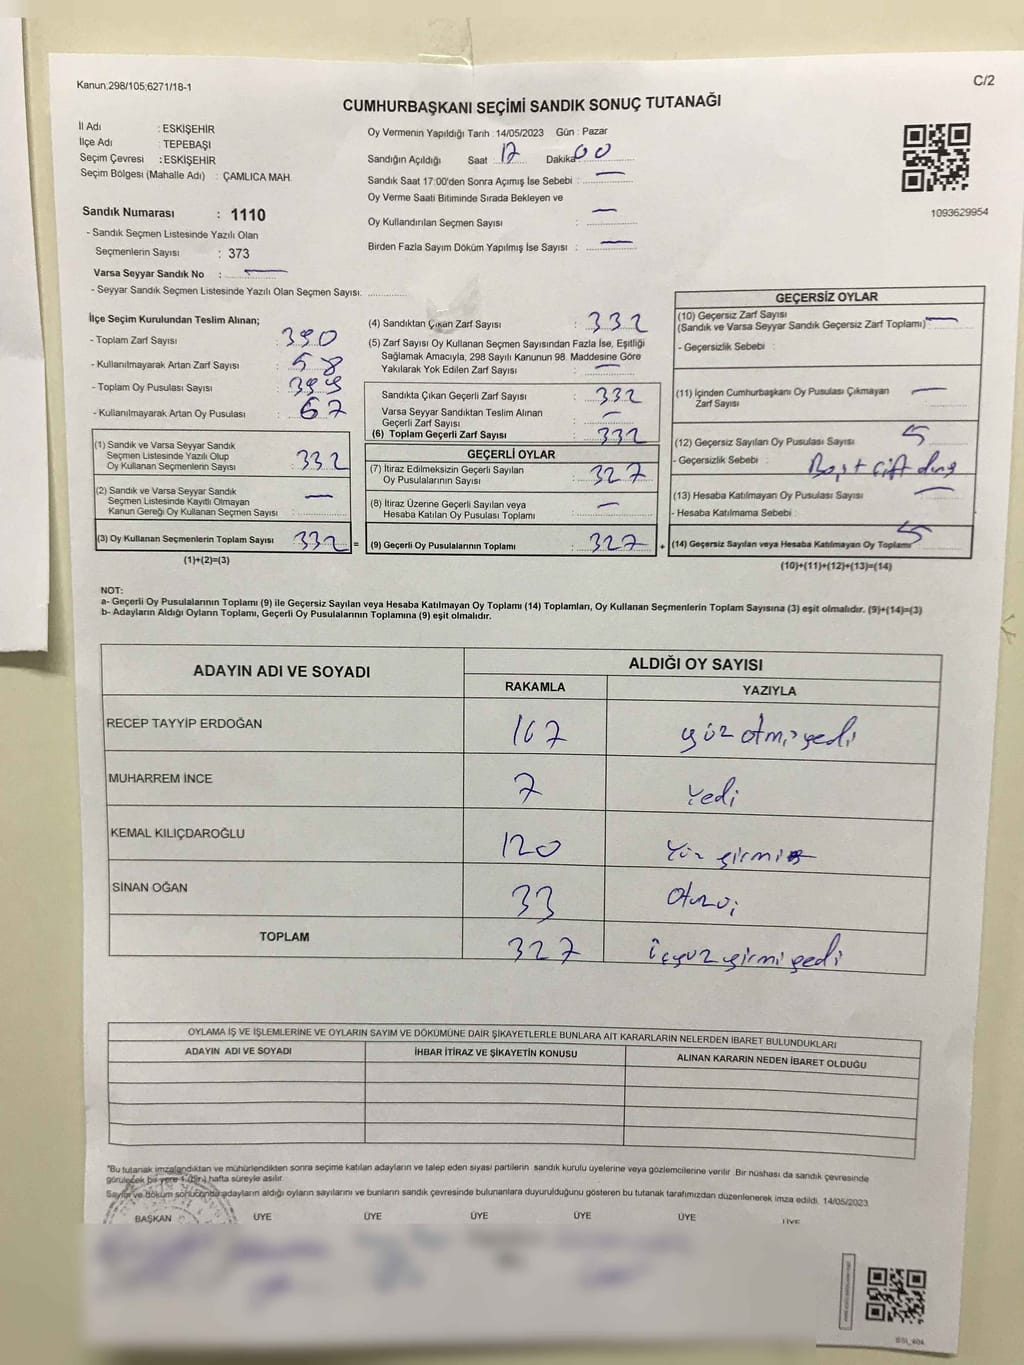 Kanun,298/105;6271/18-1
C/2
CUMHURBAŞKANI SEÇİMİ SANDIK SONUÇ TUTANAĞI
İl Adı : ESKİŞEHİR
İlçe Adı : TEPEBAŞI
Seçim Çevresi : ESKİŞEHİR
Seçim Bölgesi (Mahalle Adı) : ÇAMLICA MAH.
Sandık Numarası : 1110
- Sandık Seçmen Listesinde Yazılı Olan
Seçmenlerin Sayısı : 373
Varsa Seyyar Sandık No : —
- Seyyar Sandık Seçmen Listesinde Yazılı Olan Seçmen Sayısı:
Oy Vermenin Yapıldığı Tarih : 14/05/2023 Gün : Pazar
Sandığın Açıldığı Saat : 17 Dakika 00
Sandık Saat 17:00'den Sonra Açımış İse Sebebi : —
Oy Verme Saati Bitiminde Sırada Bekleyen ve
Oy Kullandırılan Seçmen Sayısı : —
Birden Fazla Sayım Döküm Yapılmış İse Sayısı : —
1093629954
İlçe Seçim Kurulundan Teslim Alınan;
- Toplam Zarf Sayısı : 390
- Kullanılmayarak Artan Zarf Sayısı : 58
- Toplam Oy Pusulası Sayısı :
- Kullanılmayarak Artan Oy Pusulası : 67
(1) Sandık ve Varsa Seyyar Sandık
Seçmen Listesinde Yazılı Olup
Oy Kullanan Seçmenlerin Sayısı : 332
(2) Sandık ve Varsa Seyyar Sandık
Seçmen Listesinde Kayıtlı Olmayan
Kanun Gereği Oy Kullanan Seçmen Sayısı : —
(3) Oy Kullanan Seçmenlerin Toplam Sayısı 332 =
(1)+(2)=(3)
(4) Sandıktan Çıkan Zarf Sayısı : 332
(5) Zarf Sayısı Oy Kullanan Seçmen Sayısından Fazla İse, Eşitliği
Sağlamak Amacıyla, 298 Sayılı Kanunun 98. Maddesine Göre
Yakılarak Yok Edilen Zarf Sayısı : —
Sandıkta Çıkan Geçerli Zarf Sayısı : 332
Varsa Seyyar Sandıktan Teslim Alınan
Geçerli Zarf Sayısı : —
(6) Toplam Geçerli Zarf Sayısı : 332
GEÇERLİ OYLAR
(7) İtiraz Edilmeksizin Geçerli Sayılan
Oy Pusulalarının Sayısı : 327
(8) İtiraz Üzerine Geçerli Sayılan veya
Hesaba Katılan Oy Pusulası Toplamı : —
(9) Geçerli Oy Pusulalarının Toplamı : 327 +
GEÇERSİZ OYLAR
(10) Geçersiz Zarf Sayısı
(Sandık ve Varsa Seyyar Sandık Geçersiz Zarf Toplamı) : —
- Geçersizlik Sebebi :
(11) İçinden Cumhurbaşkanı Oy Pusulası Çıkmayan
Zarf Sayısı : —
(12) Geçersiz Sayılan Oy Pusulası Sayısı : 5
- Geçersizlik Sebebi :
(13) Hesaba Katılmayan Oy Pusulası Sayısı : —
- Hesaba Katılmama Sebebi :
(14) Geçersiz Sayılan veya Hesaba Katılmayan Oy Toplamı : 5
(10)+(11)+(12)+(13)=(14)
NOT:
a- Geçerli Oy Pusulalarının Toplamı (9) ile Geçersiz Sayılan veya Hesaba Katılmayan Oy Toplamı (14) Toplamları, Oy Kullanan Seçmenlerin Toplam Sayısına (3) eşit olmalıdır. (9)+(14)=(3)
b- Adayların Aldığı Oyların Toplamı, Geçerli Oy Pusulalarının Toplamına (9) eşit olmalıdır.
ADAYIN ADI VE SOYADI ALDIĞI OY SAYISI
RAKAMLA YAZIYLA
RECEP TAYYİP ERDOĞAN 167 yüz atmış yedi
MUHARREM İNCE 7 Yedi
KEMAL KILIÇDAROĞLU 120 Yüz yirmi
SİNAN OĞAN 33
TOPLAM 327 üçyüz yirmi yedi
OYLAMA İŞ VE İŞLEMLERİNE VE OYLARIN SAYIM VE DÖKÜMÜNE DAİR ŞİKAYETLERLE BUNLARA AİT KARARLARIN NELERDEN İBARET BULUNDUKLARI
ADAYIN ADI VE SOYADI İHBAR İTİRAZ VE ŞİKAYETİN KONUSU ALINAN KARARIN NEDEN İBARET OLDUĞU
"Bu tutanak imzalandıktan ve mühürlendikten sonra seçime katılan adayların ve talep eden siyasi partilerin sandık kurulu üyelerine veya gözlemcilerine verilir. Bir nüshası da sandık çevresinde
görülecek bir yere 1 (Bir) hafta süreyle asılır.
Sayım ve döküm sonucunda adayların aldığı oyların sayılarını ve bunların sandık çevresinde bulunanlara duyurulduğunu gösteren bu tutanak tarafımızdan düzenlenerek imza edildi. 14/05/2023
BAŞKAN ÜYE ÜYE ÜYE ÜYE ÜYE ÜYE